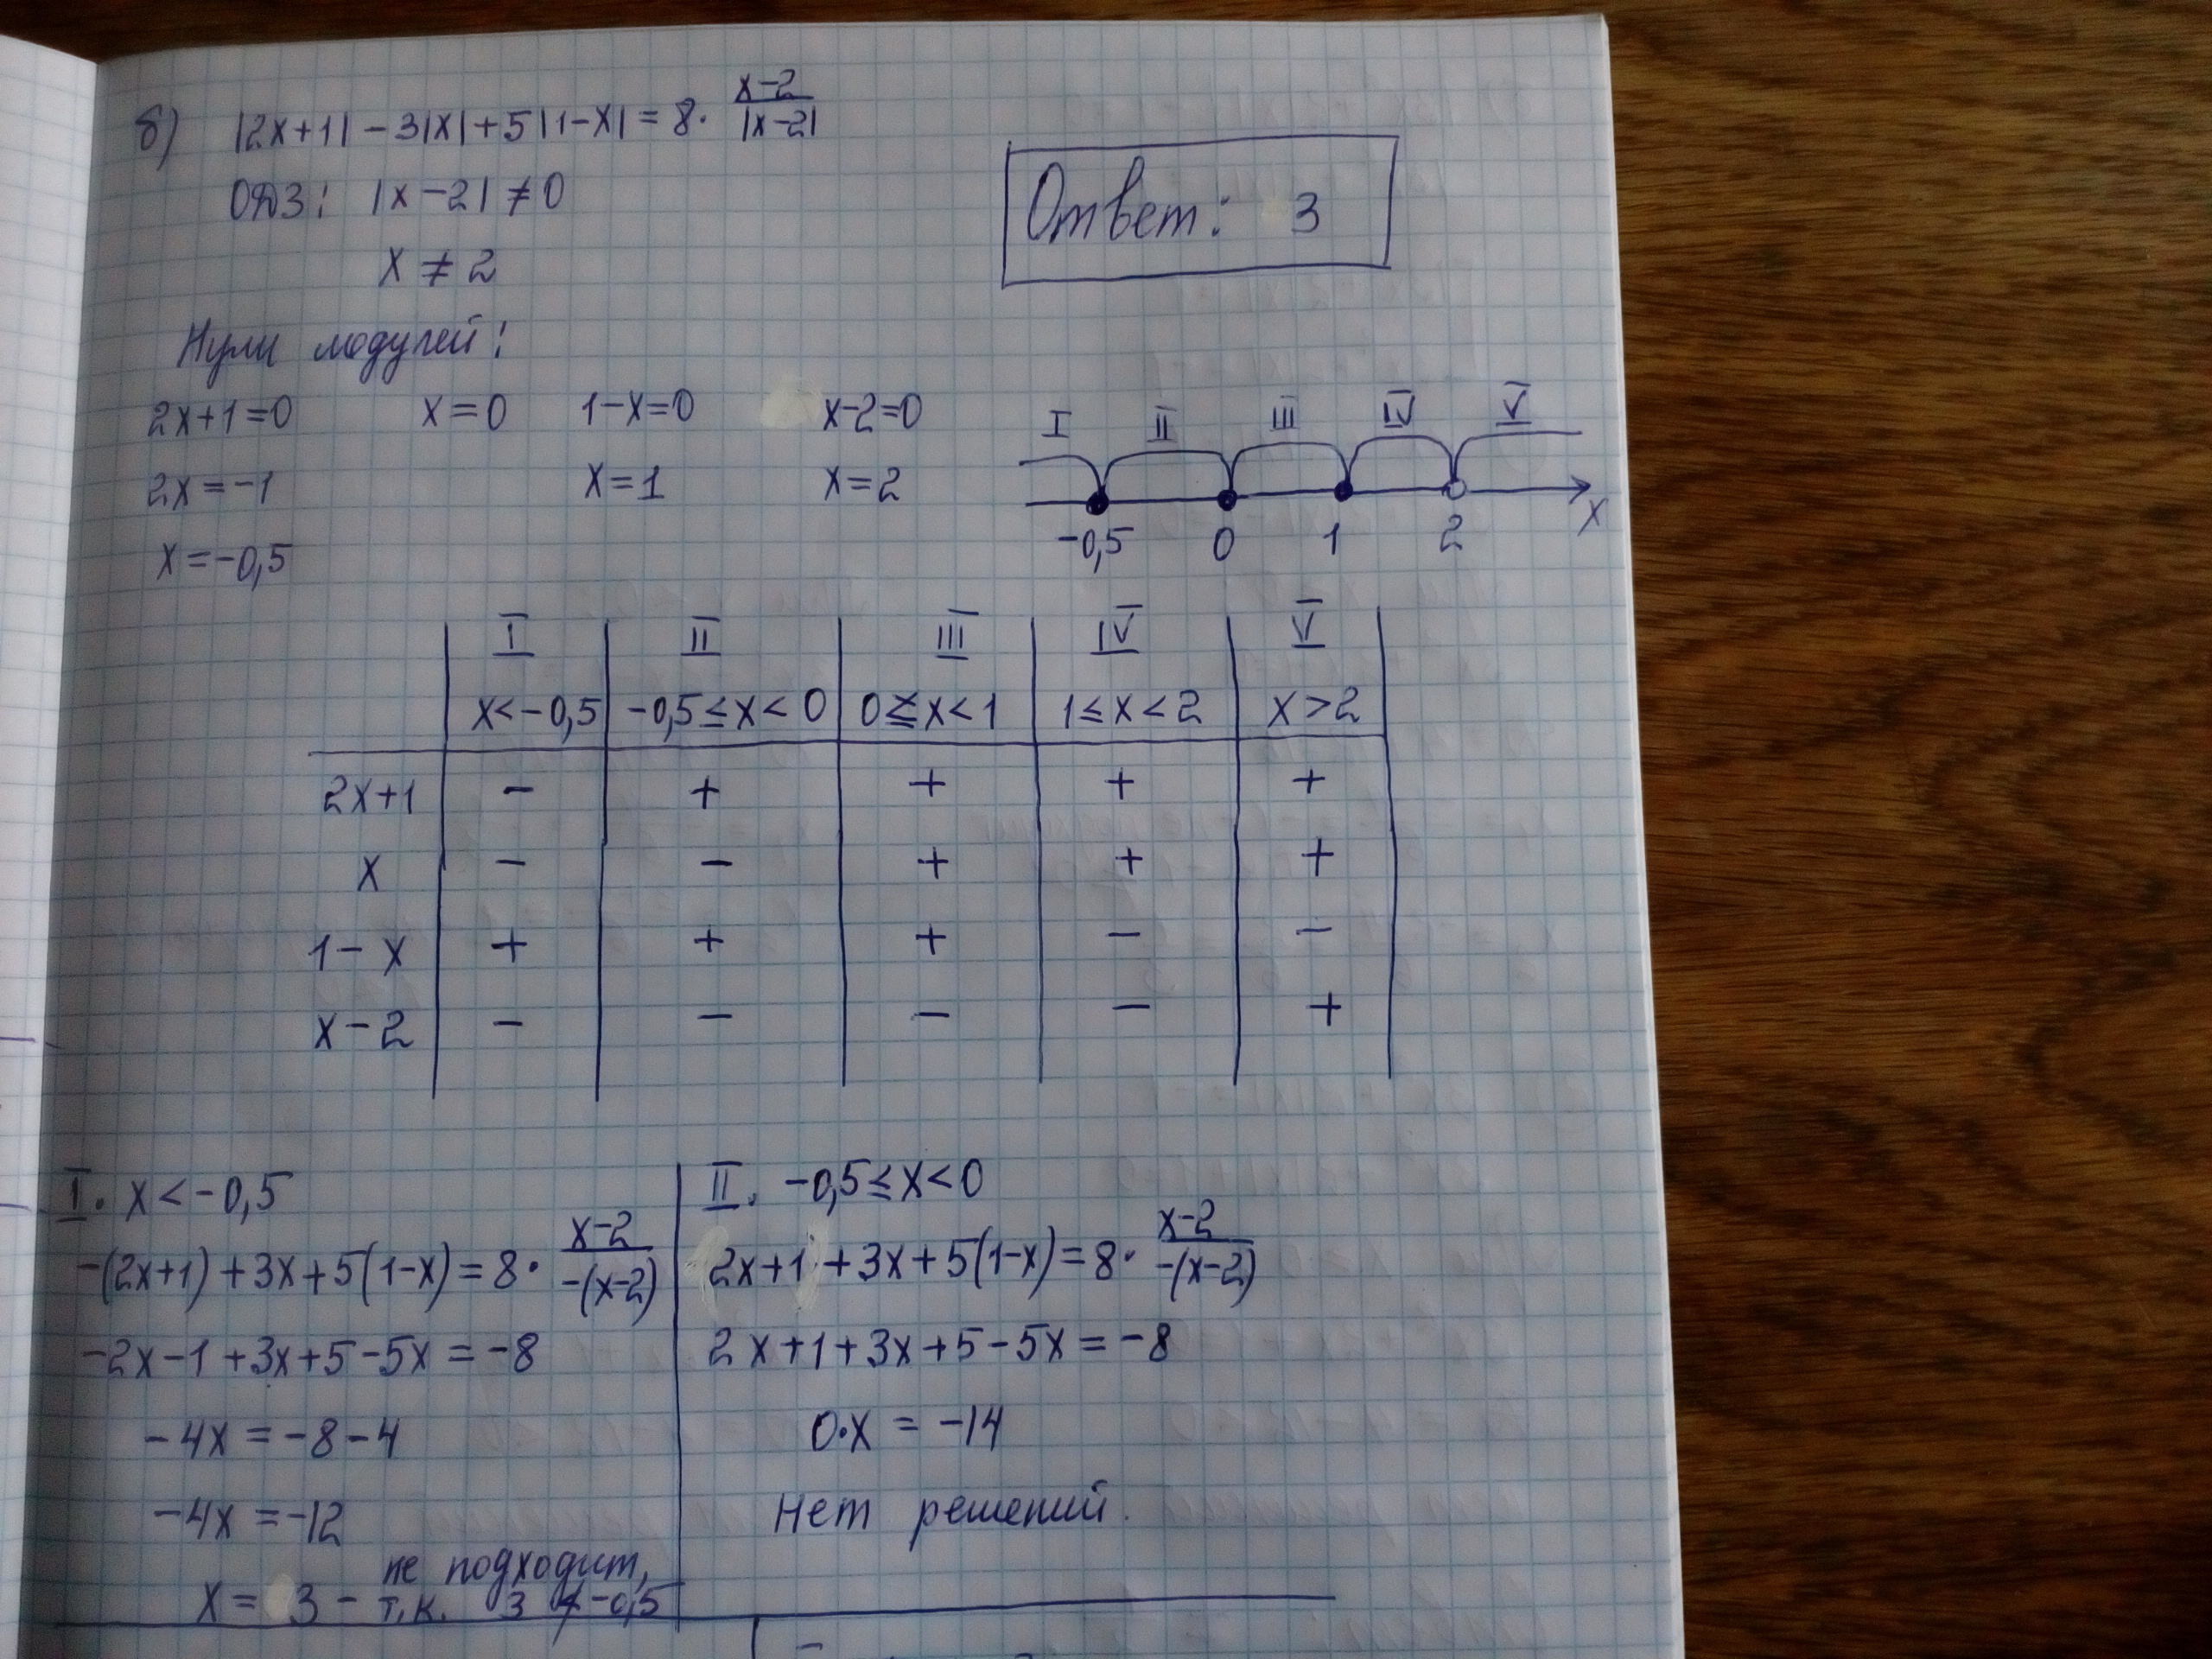 б) |2x+1| - 3|x| + 5|1-x| = 8 · (x-2)/|x-2|
ОДЗ: |x-2| ≠ 0
x ≠ 2
Ответ: 3
Нули модулей:
2x+1=0 x=0 1-x=0 x-2=0
2x=-1 x=1 x=2
x=-0,5
I II III IV V
-0,5 0 1 2 x
I II III IV V
x<-0,5 -0,5≤x<0 0≤x<1 1≤x<2 x>2
2x+1 - + + + +
x - - + + +
1-x + + + - -
x-2 - - - - +
I. x<-0,5
-(2x+1)+3x+5(1-x)=8· (x-2)/-(x-2)
-2x-1+3x+5-5x=-8
-4x=-8-4
-4x=-12
x= 3 - не подходит,
т.к. 3 ≮ -0,5
II. -0,5≤x<0
2x+1+3x+5(1-x)=8· (x-2)/-(x-2)
2x+1+3x+5-5x=-8
0·x=-14
Нет решений.